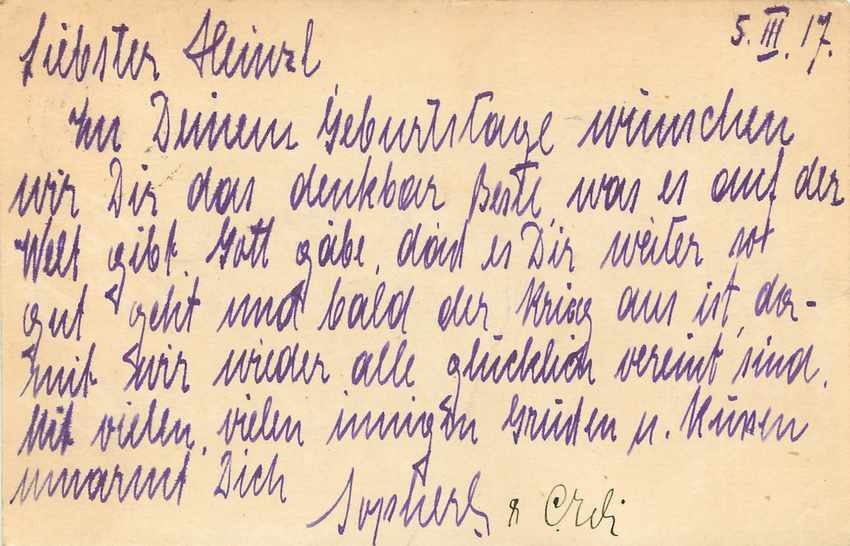 5. III. 17.
Liebster Heinzl
Zu Deinem Geburtstage wünschen
wir Dir das denkbar Beste, was es auf der
Welt gibt. Gott gäbe, daß es Dir weiter so
gut geht und bald der Krieg aus ist, da-
mit wir wieder alle glücklich vereint sind.
Mit vielen, vielen innigen Grüßen u. Küssen
umarmt Dich
Sopherl &